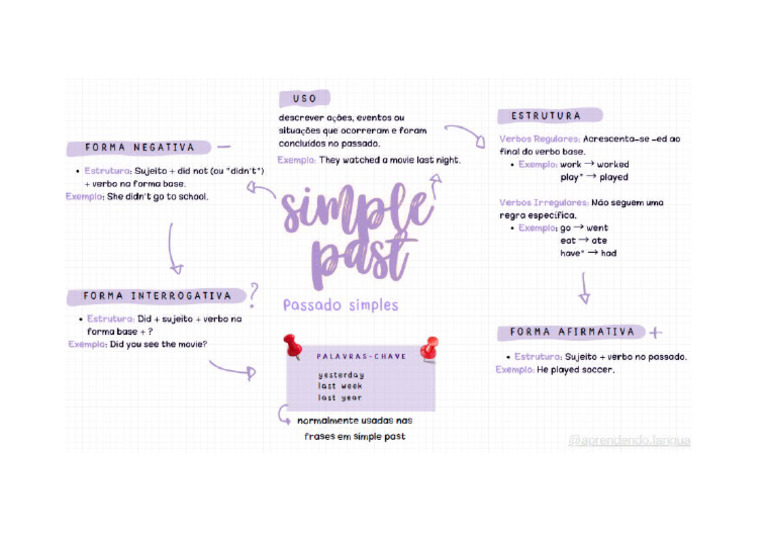 USO
descrever ações, eventos ou
situações que ocorreram e foram
concluídos no passado.
Exemplo: They watched a movie last night.
ESTRUTURA
Verbos Regulares: Acrescenta-se -ed ao
final do verbo base.
• Exemplo: work → worked
play* → played
Verbos Irregulares: Não seguem uma
regra específica.
• Exemplo: go → went
eat → ate
have* → had
FORMA NEGATIVA –
• Estrutura: Sujeito + did not (ou "didn't")
+ verbo na forma base.
Exemplo: She didn't go to school.
simple
past
Passado simples
FORMA INTERROGATIVA ?
• Estrutura: Did + sujeito + verbo na
forma base + ?
Exemplo: Did you see the movie?
FORMA AFIRMATIVA +
• Estrutura: Sujeito + verbo no passado.
Exemplo: He played soccer.
PALAVRAS-CHAVE
yesterday
last week
last year
normalmente usadas nas
frases em simple past
@aprendendo.langua